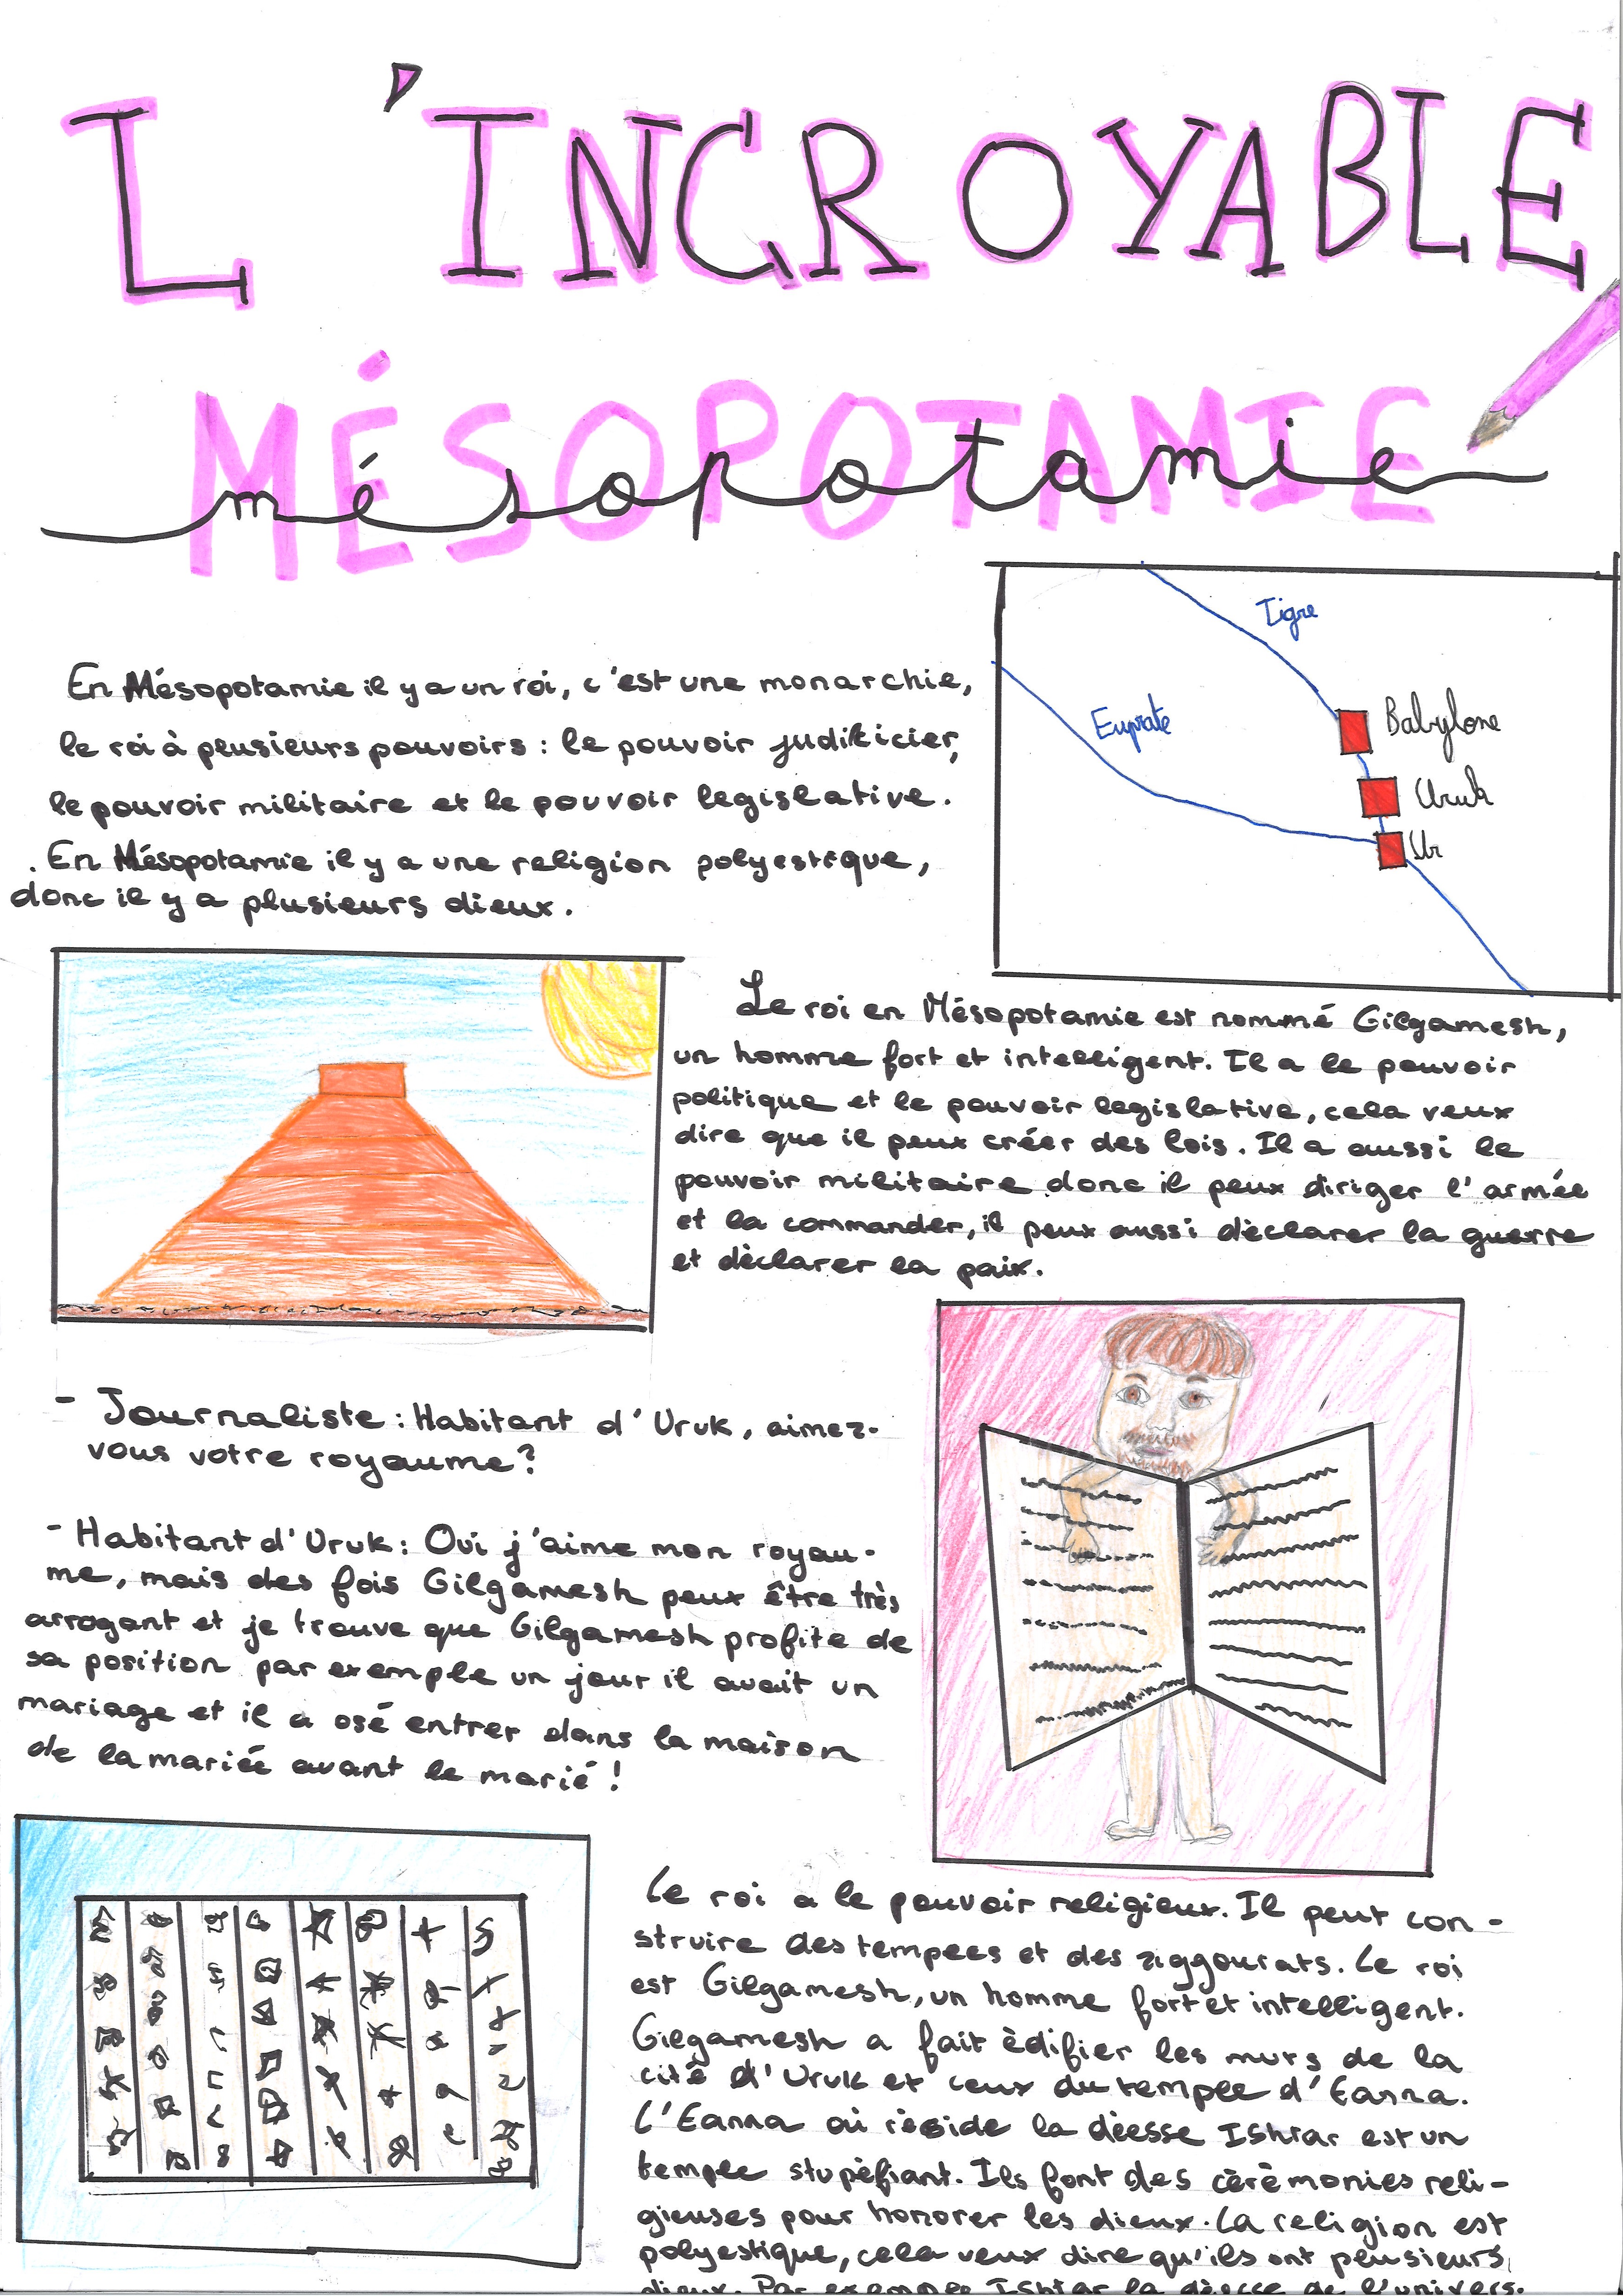 L'INCROYABLE
MÉSOPOTAMIE
mésopotamie
Tigre
Euprate
Babylone
Uruk
Ur
En Mésopotamie il y a un roi, c'est une monarchie,
le roi à plusieurs pouvoirs : le pouvoir
le pouvoir militaire et le pouvoir legislative.
. En Mésopotamie il y a une religion polyestique,
donc il y a plusieurs dieux.
Le roi en Mésopotamie est nommé Gilgamesh,
un homme fort et intelligent. Il a le pouvoir
politique et le pouvoir legislative, cela veux
dire que il peux créer des lois. Il a aussi le
pouvoir militaire donc il peux diriger l'armée
et la commander, il peux aussi dèclarer la guerre
et dèclarer la paix.
- Journaliste : Habitant d'Uruk, aimez-
vous votre royaume ?
- Habitant d'Uruk : Oui j'aime mon royau-
me, mais des fois Gilgamesh peux être très
arrogant et je trouve que Gilgamesh profite de
sa position par exemple un jour il avait un
mariage et il a osé entrer dans la maison
de la mariée avant le marié !
Le roi a le pouvoir religieux. Il peut con-
struire des temples et des ziggourats. Le roi
est Gilgamesh, un homme fort et intelligent.
Gilgamesh a fait èdifier les murs de la
cité d'Uruk et ceux du temple d'Eanna.
L'Eanna où rèside la dèesse Ishtar est un
temple stupèfiant. Ils font des cèrèmonies reli-
gieuses pour honorer les dieux. La religion est
polyestique, cela veux dire qu'ils ont plusieurs
dieux. Par exemple Ishtar la dèesse de l'univers.